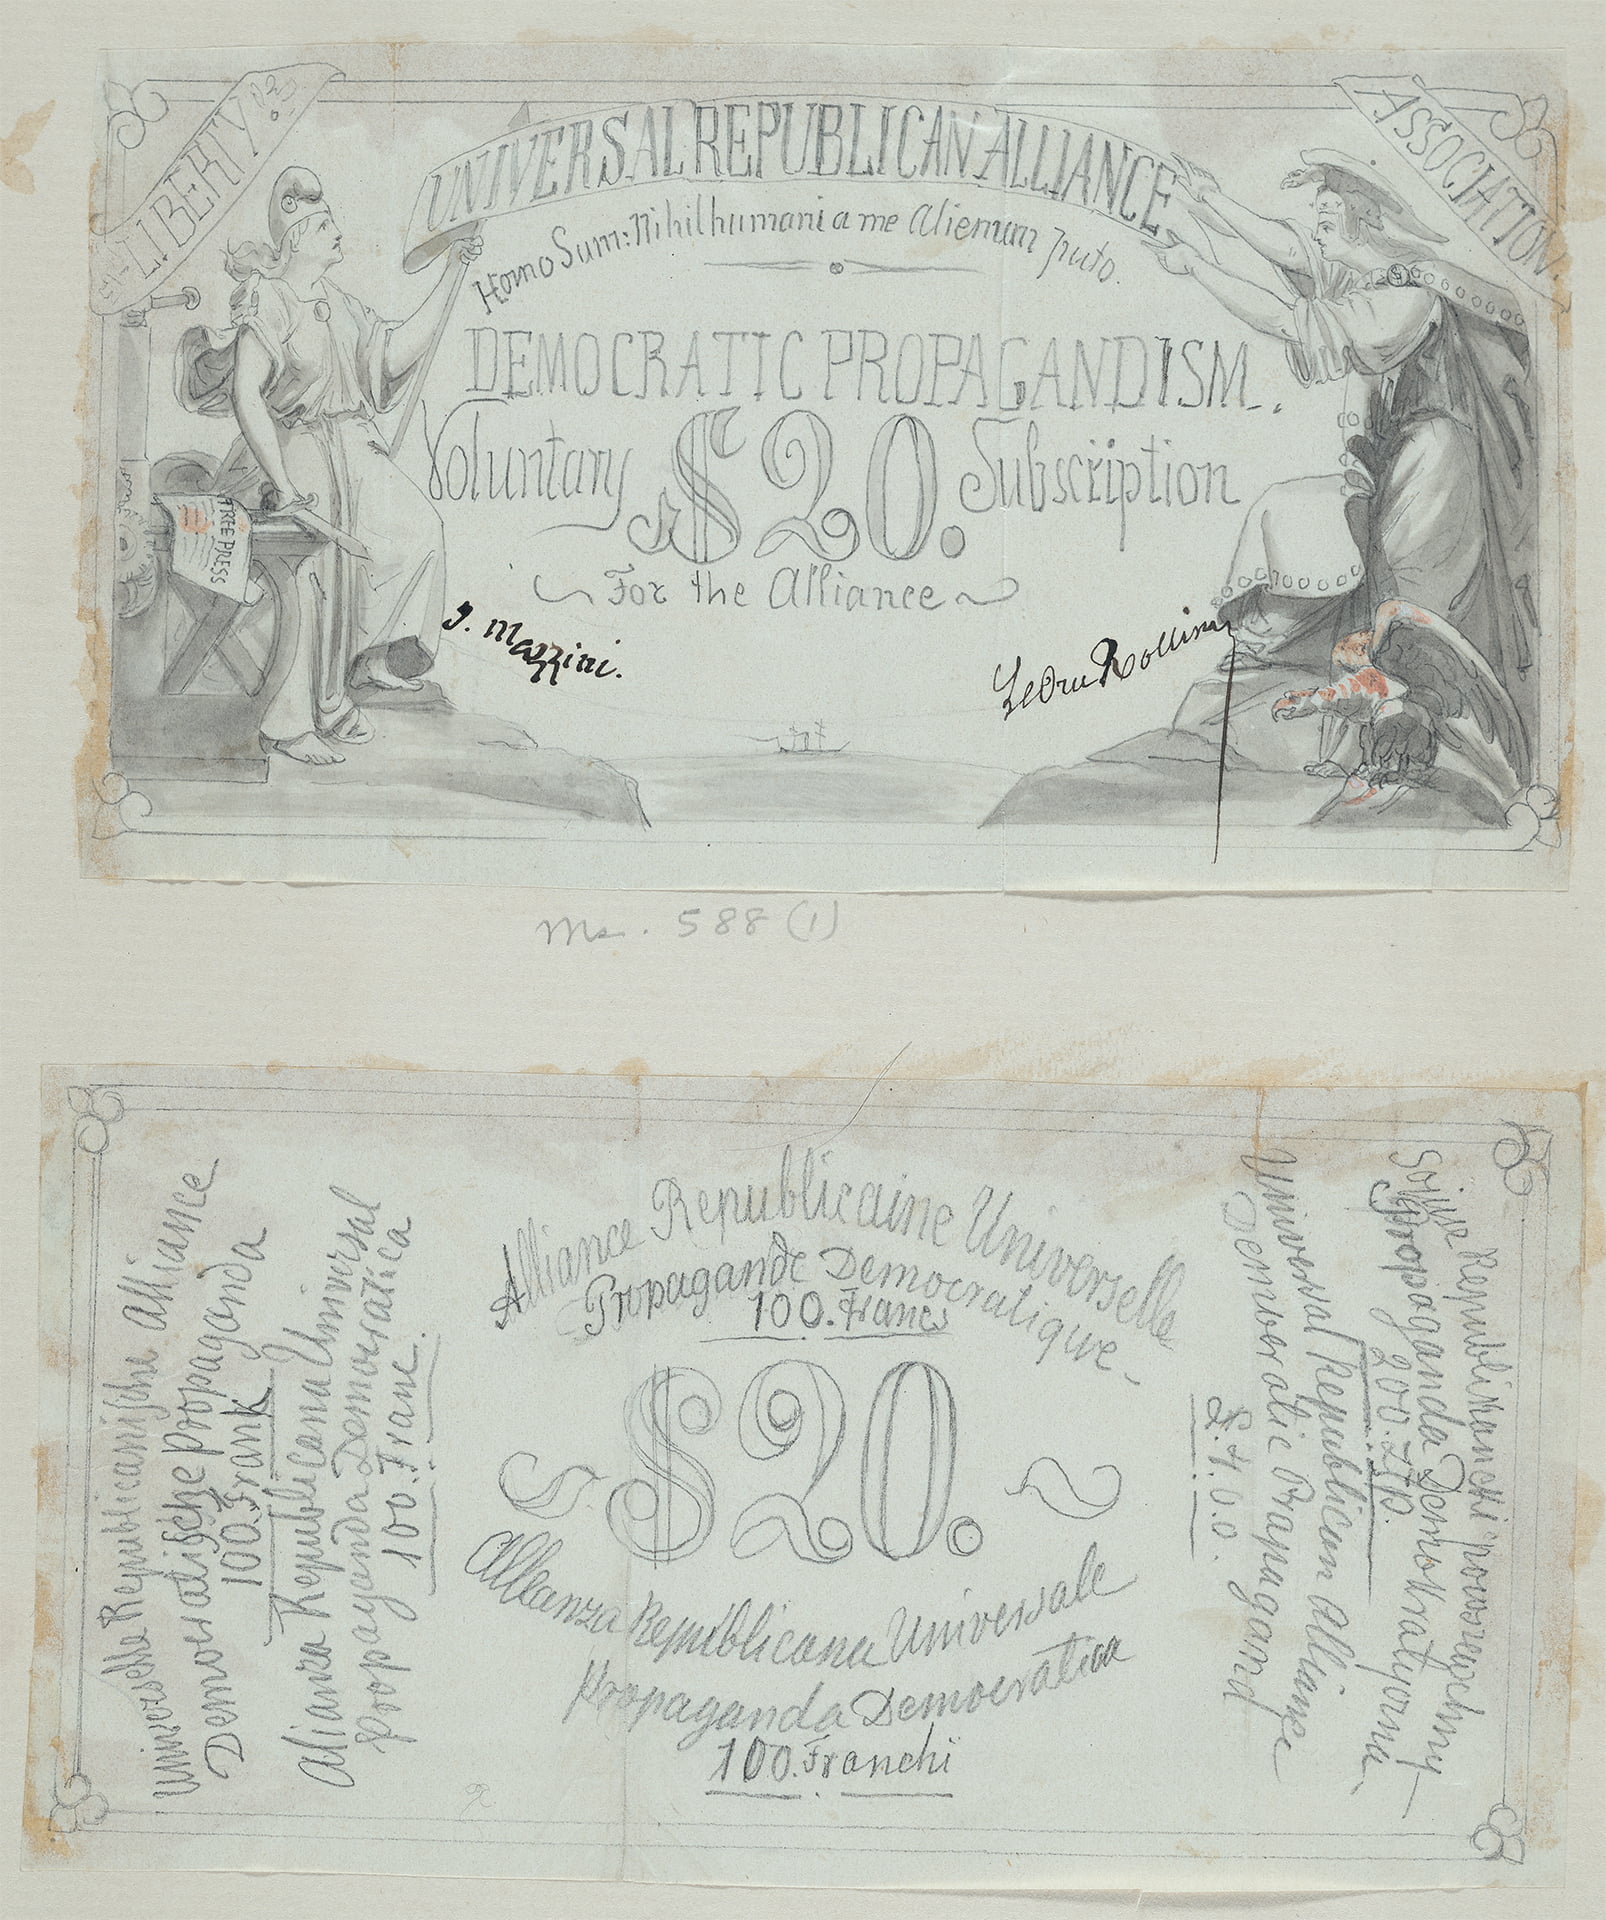 LIBERTY.
ASSOCIATION.
UNIVERSAL REPUBLICAN ALLIANCE
Homo Sum: Nihil humani a me Alienum puto.
DEMOCRATIC PROPAGANDISM.
Voluntary $20. Subscription
For the Alliance
FREE PRESS
J. Mazzini.
Ledru Rollin
Ms. 588 (1)
Alliance Republicaine Universelle
Propagande Democratique,
100. Francs
$20.
Alleanza Repúblicana Universale
Propaganda Democratica
100. Franchi
Republicanische Alliance
Democratische propaganda
100. Frank
Alianza Republicana Universal
propaganda Democratica
100. Franc.
Universal Republican Alliance
Democratic Propagand
£. 4. 0. 0.
Republikancki powszechny
Propaganda Demokratyczna
200. Złp.